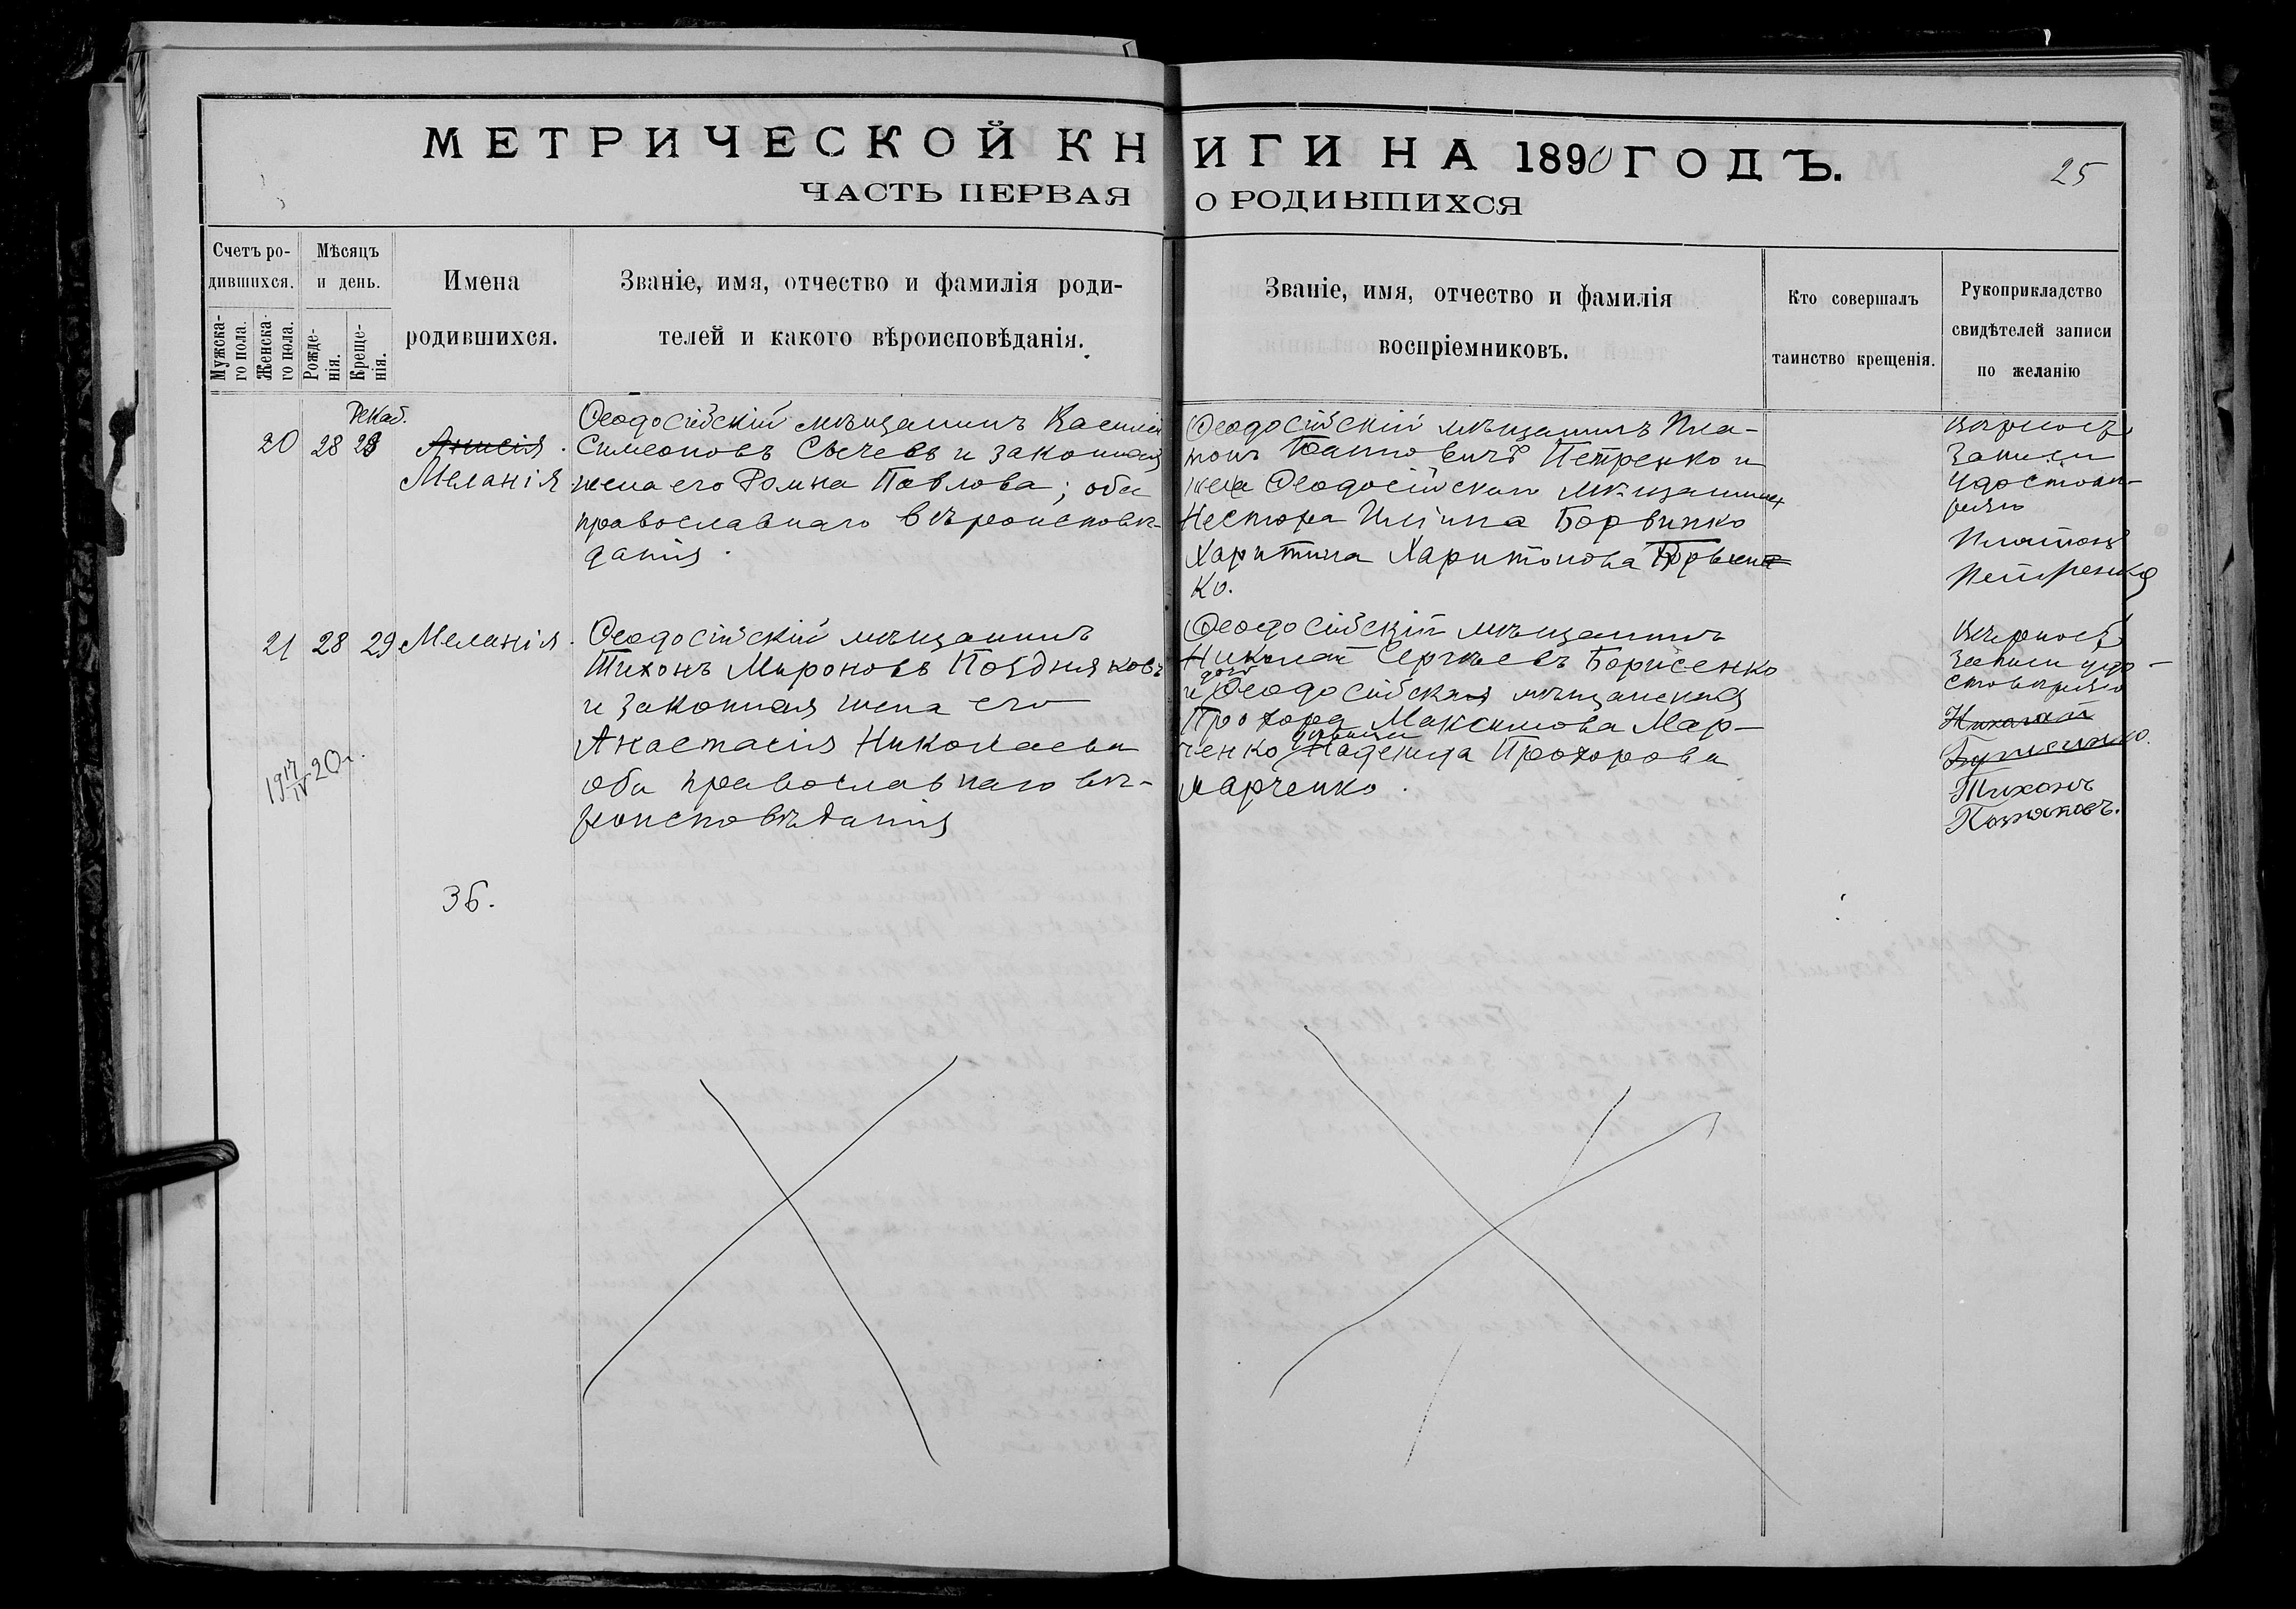 МЕТРИЧЕСКОЙ КНИГИ НА 1890 ГОДЪ.
25
ЧАСТЬ ПЕРВАЯ О РОДИВШИХСЯ
Счетъ ро-
дившихся.
Мужска-
го пола.
Женска-
го пола.
Мѣсяцъ
и день.
Рожде-
нія.
Креще-
нія.
Имена
родившихся.
Званіе, имя, отчество и фамилія роди-
телей и какого вѣроисповѣданія.
Званіе, имя, отчество и фамилія
воспріемниковъ.
Кто совершалъ
таинство крещенія.
Рукоприкладство
свидѣтелей записи
по желанію
Декаб.
20 28 28
Анисія
Меланія
Ѳеодосійскій мѣщанинъ Василій
Симеоновъ Сычевъ и законная
жена его Домна Павлова; оба
православнаго вѣроисповѣ-
данія.
Ѳеодосійскій мѣщанинъ Пла-
тонъ Іоанновичъ Петренко и
жена Ѳеодосійскаго мѣщанина
Нестора Иліина Борвинко
Харитина Харитонова
ко.
Вѣрность
записи
удостовѣ-
ряю
Платонъ
Петренко
21 28 29 Меланія
Ѳеодосійскій мѣщанинъ
Тихонъ Мироновъ Поздняковъ
и законная жена его
Анастасія Николаева
оба православнаго вѣ-
роисповѣданія
Ѳеодосійскій мѣщанинъ
Николай Сергѣевъ Борисенко
и дочь Ѳеодосійскаго мѣщанина
Прохора Максимова Мар-
ченко дѣвица Надежда Прохорова
Марченко.
Вѣрность
записи удо-
стовѣряю
Николай
Борисенко.
Тихонъ
Позняковъ.
19 17/IV 20 г.
36.